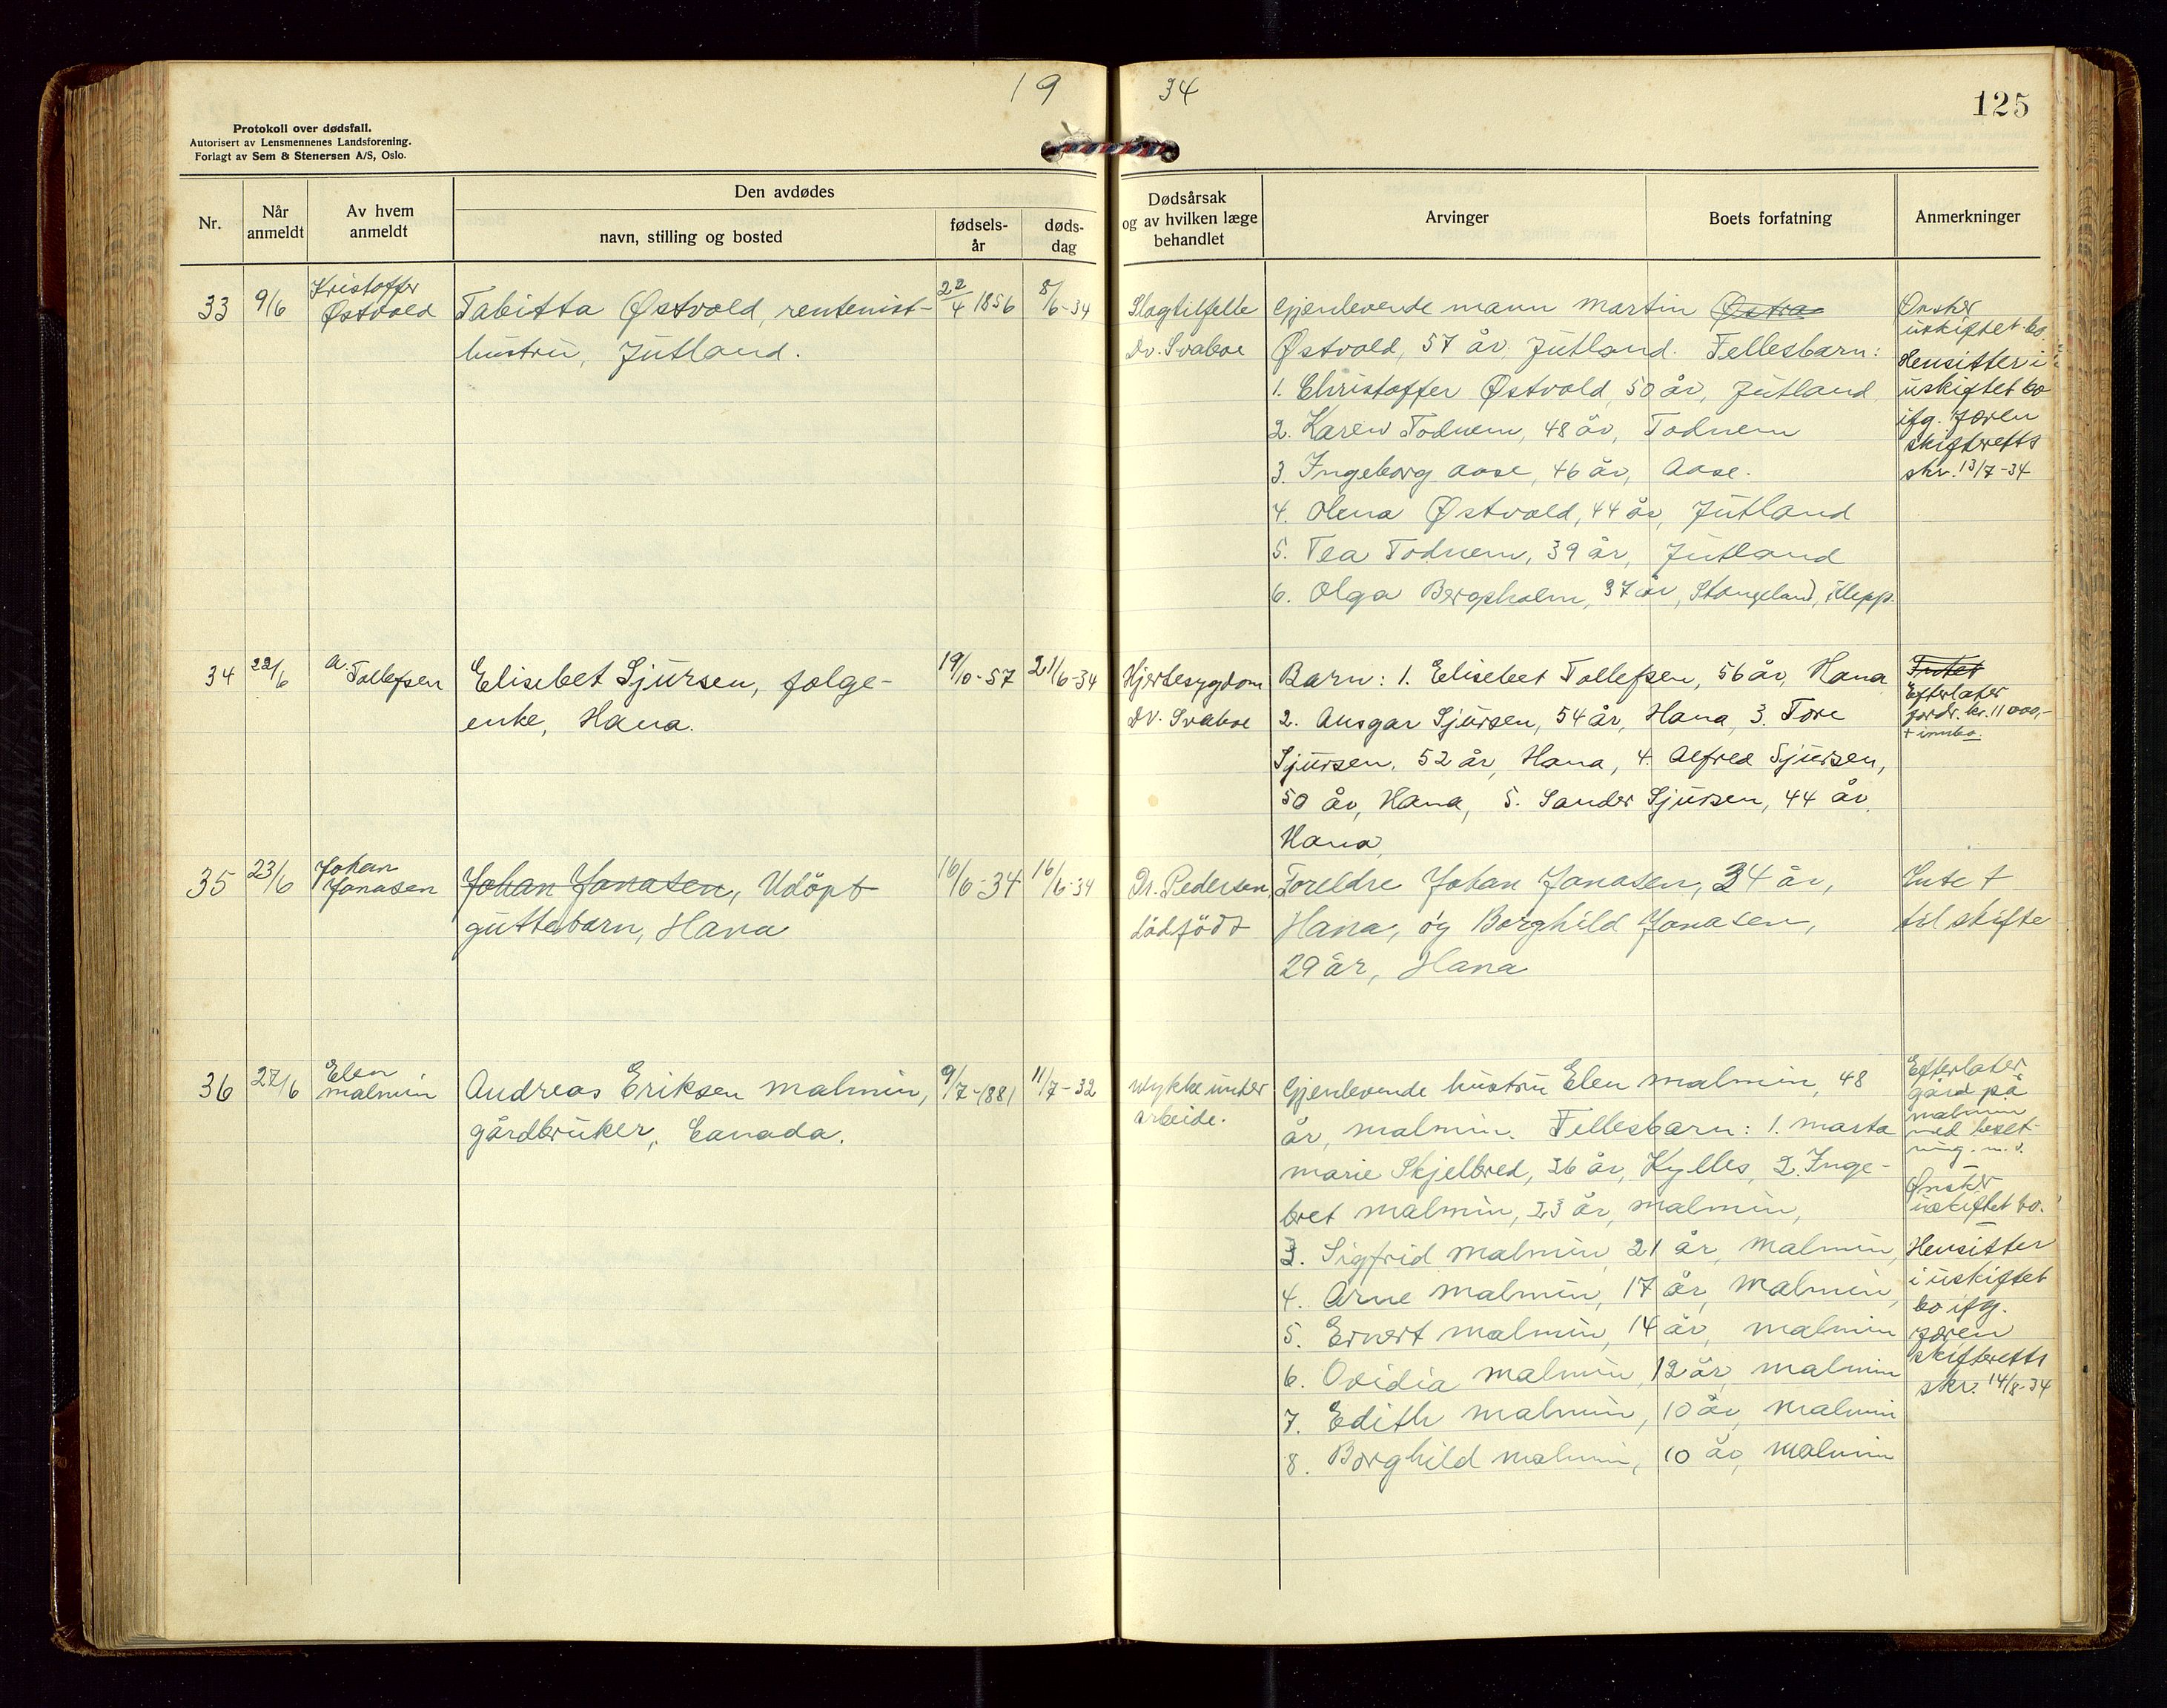 19 34
125
Protokoll over dødsfall.
Autorisert av Lensmennenes Landsforening.
Forlagt av Sem & Stenersen A/S, Oslo.
Nr.
Når anmeldt
Av hvem anmeldt
Den avdødes
navn, stilling og bosted
fødsels-
år
døds-
dag
Dødsårsak
og av hvilken læge
behandlet
Arvinger
Boets forfatning
Anmerkninger
33 9/6 Kristoffer Østvold
Tabitta Østvold, rentenist-
hustru, Jutland.
22/4 1856 8/6-34
Slagtilfelle
Dr. Svaboe
Gjenlevende mann Martin Østvo
Østvold, 57 år, Jutland. Fellesbarn:
1. Christoffer Østvold, 50 år, Jutland
2. Karen Todnem, 48 år, Todnem
3. Ingeborg Aase, 46 år, Aase.
4. Olena Østvold, 44 år, Jutland
5. Tea Todnem, 39 år, Jutland
6. Olga Bergsholm, 37 år, Stangeland, Klepp.
Ønsker
uskiftet bo.
Hensitter i
uskiftet bo
ifg. Jæren
skifteretts
skr. 13/7-34
34 22/6 A. Tollefsen
Elisebet Sjursen, følge-
enke, Hana.
19/10-57 21/6-34
Hjertesygdom
Dr. Svaboe
Barn: 1. Elisebet Tollefsen, 56 år, Hana
2. Ansgar Sjursen, 54 år, Hana, 3. Tore
Sjursen, 52 år, Hana, 4. Alfred Sjursen,
50 år, Hana, 5. Sander Sjursen, 44 år,
Hana
Intet
Efterlater
fordr. kr. 11 000,-
+ innbo.
35 23/6 Johan Jonasen
Johan Jonasen, Udöpt
guttebarn, Hana
16/6-34 16/6-34
Dr. Pedersen,
dödfödt
Foreldre Johan Jonasen, 34 år,
Hana, og Borghild Jonasen,
29 år, Hana
Intet
til skifte
36 27/6 Elen Malmin
Andreas Eriksen Malmin,
gårdbruker, Canada.
9/7-1881 11/7-32
Ulykke under
arbeide.
Gjenlevende hustru Elen Malmin, 48
år, Malmin. Fellesbarn: 1. Marta
Marie Skjelbred, 26 år, Kylles, 2. Inge-
bret Malmin, 23 år, Malmin,
3. Sigfrid Malmin, 21 år, Malmin,
4. Arne Malmin, 17 år, Malmin,
5. Ernert Malmin, 14 år, Malmin
6. Ovidia Malmin, 12 år, Malmin
7. Edith Malmin, 10 år, Malmin
8. Borghild Malmin, 10 år, Malmin
Efterlater
gård på
Malmin
med beset-
ning. m.v.
Ønsker
uskiftet bo.
Hensitter
i uskiftet
bo ifg.
Jæren
skifteretts
skr. 14/8-34